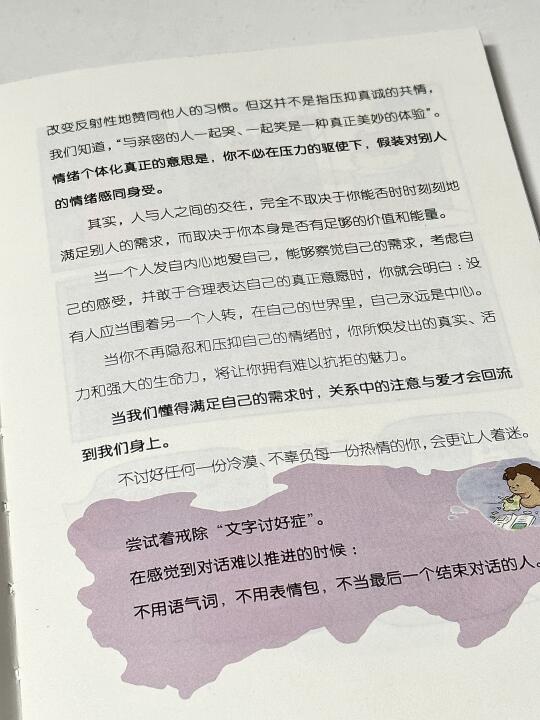 改变反射性地赞同他人的习惯。但这并不是指压抑真诚的共情，
我们知道，“与亲密的人一起哭、一起笑是一种真正美妙的体验”。
情绪个体化真正的意思是，你不必在压力的驱使下，假装对别人
的情绪感同身受。
其实，人与人之间的交往，完全不取决于你能否时时刻刻地
满足别人的需求，而取决于你本身是否有足够的价值和能量。
当一个人发自内心地爱自己，能够察觉自己的需求，考虑自
己的感受，并敢于合理表达自己的真正意愿时，你就会明白：没
有人应当围着另一个人转，在自己的世界里，自己永远是中心。
当你不再隐忍和压抑自己的情绪时，你所焕发出的真实、活
力和强大的生命力，将让你拥有难以抗拒的魅力。
当我们懂得满足自己的需求时，关系中的注意与爱才会回流
到我们身上。
不讨好任何一份冷漠、不辜负每一份热情的你，会更让人着迷。
尝试着戒除“文字讨好症”。
在感觉到对话难以推进的时候：
不用语气词，不用表情包，不当最后一个结束对话的人。